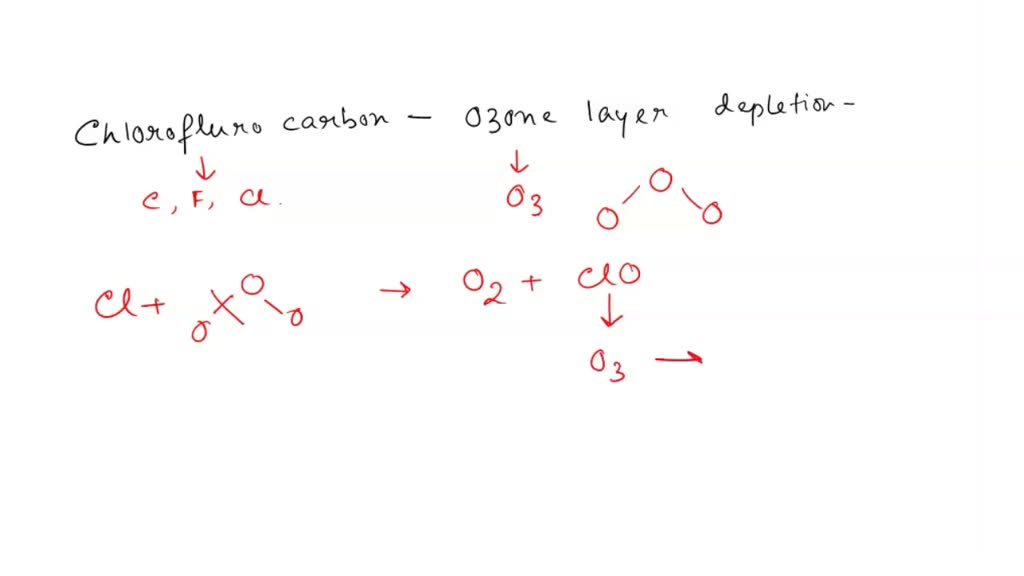 Chlorofluro carbon – Ozone layer depletion –
↓ ↓
C, F, Cl. O3 O O O
Cl + O O O → O2 + ClO
↓
O3 →